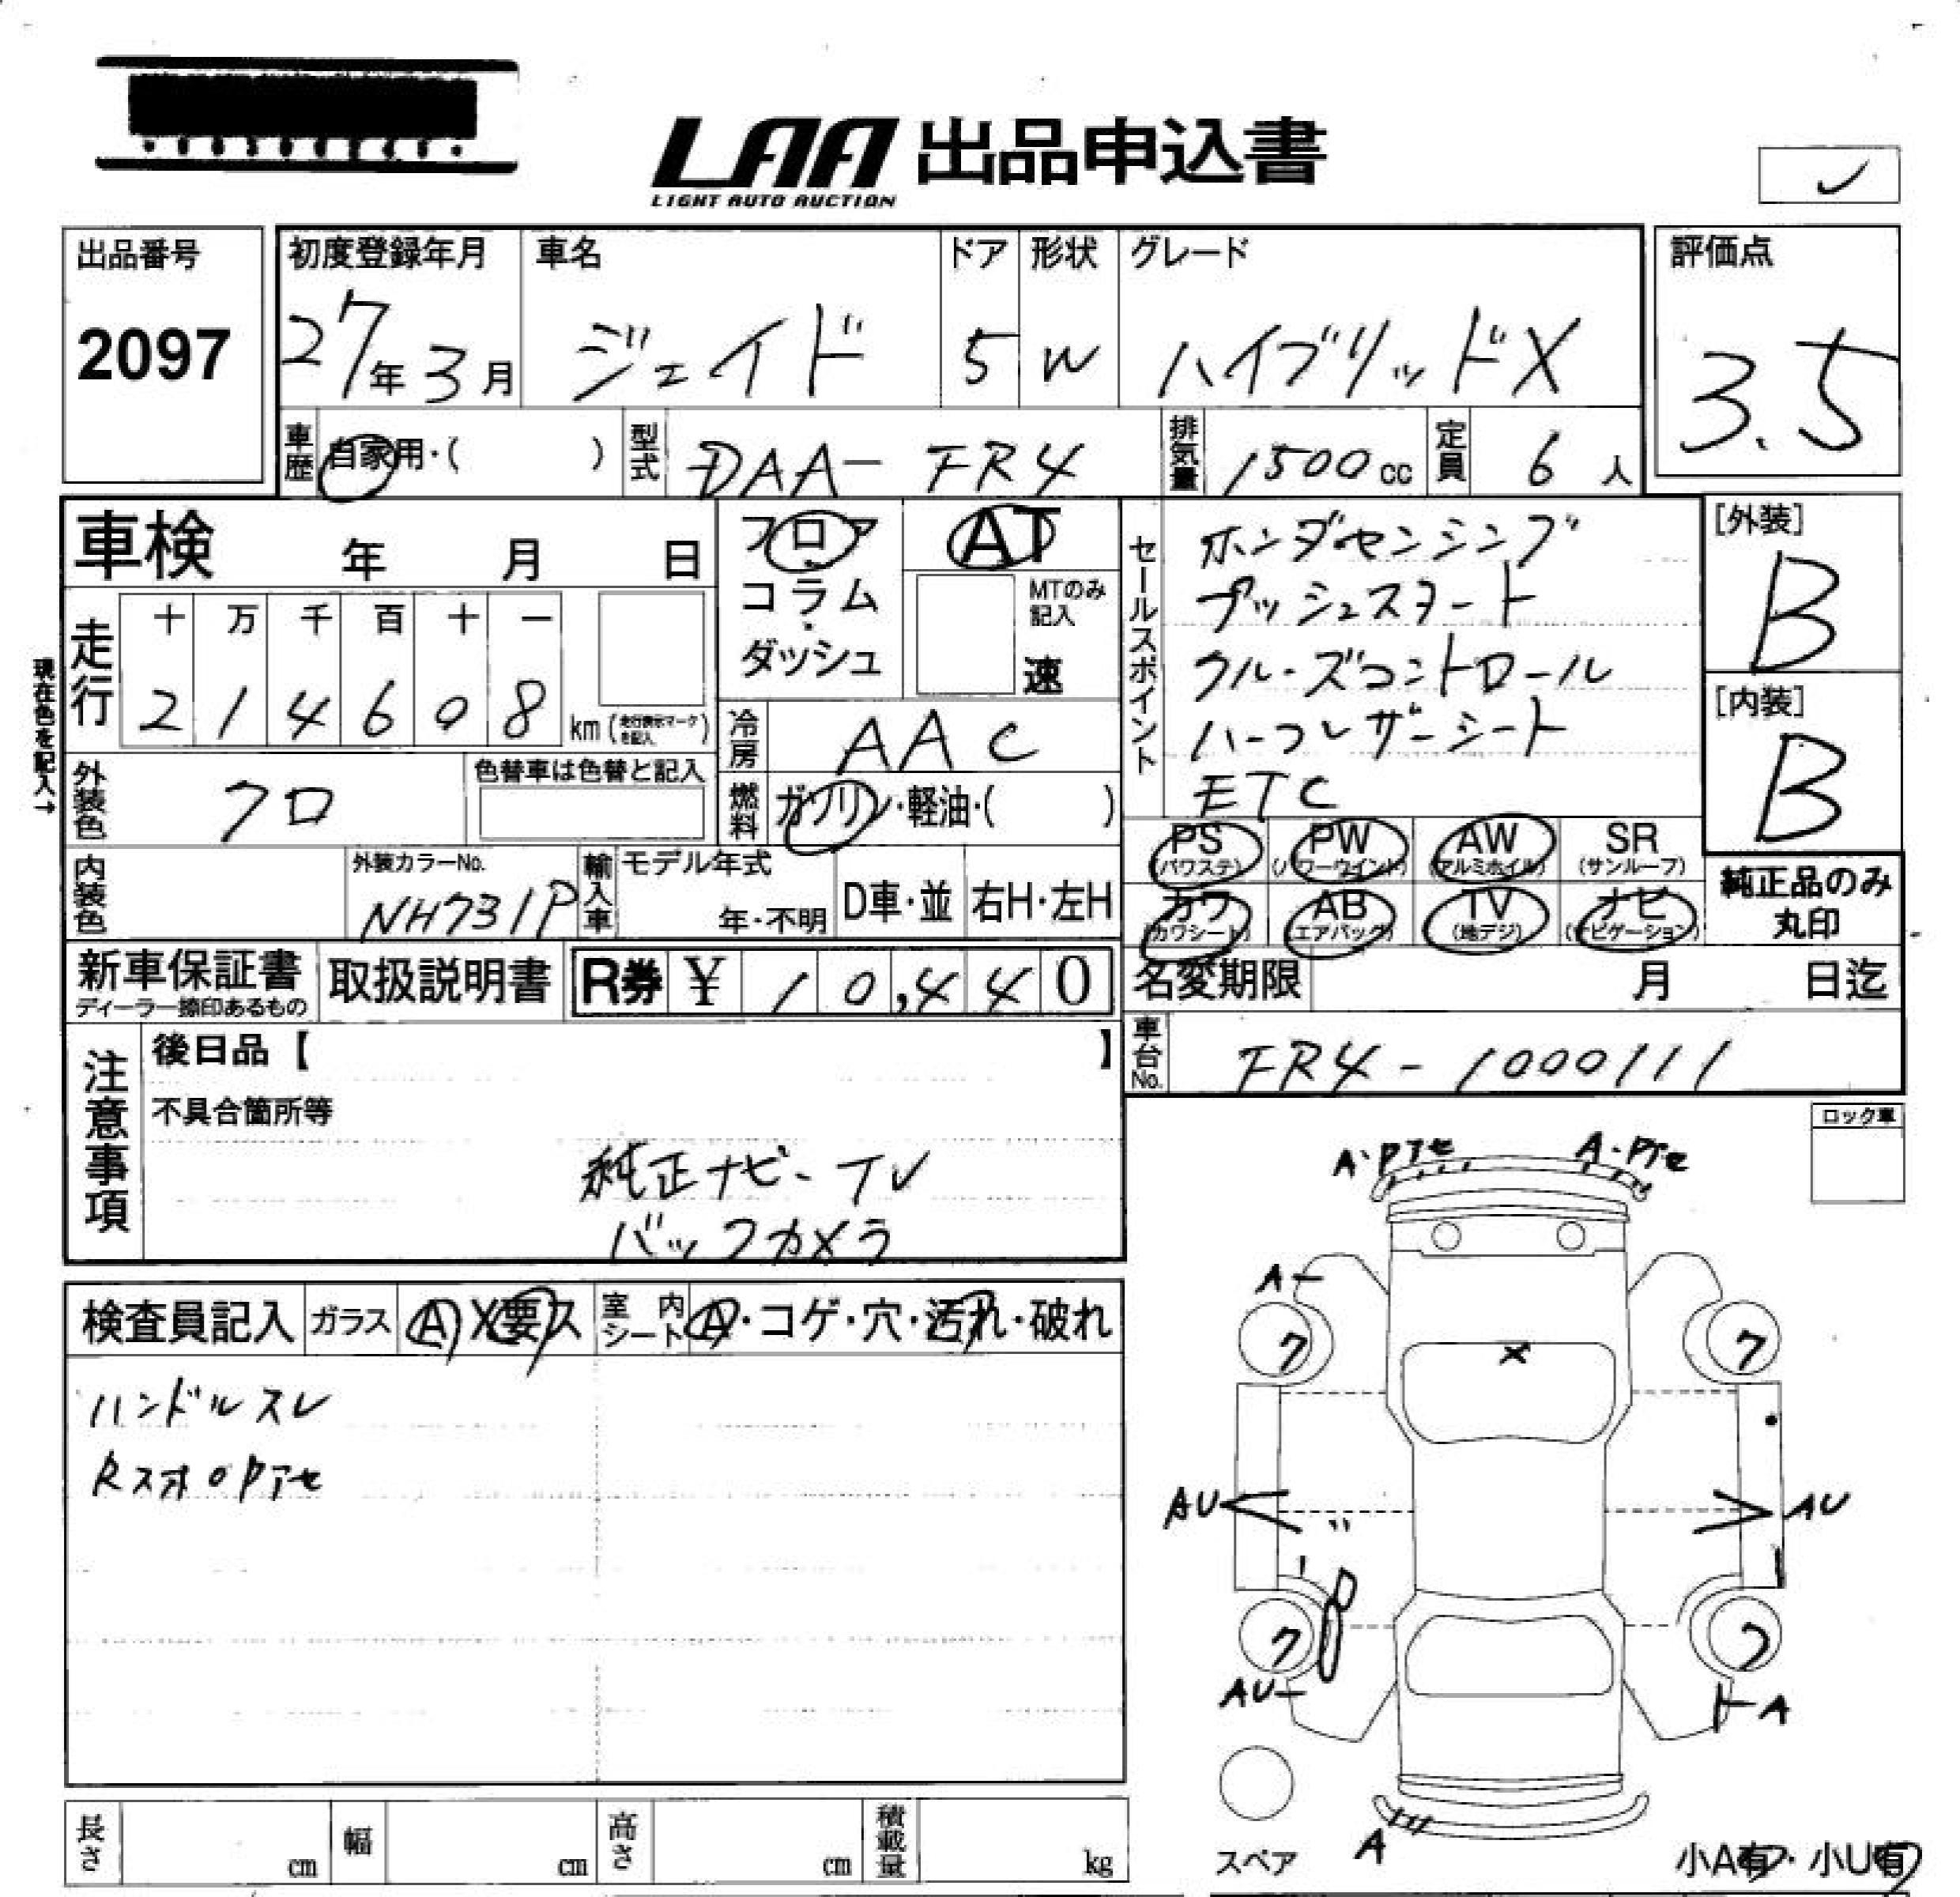 LAA 出品申込書
LIGHT AUTO AUCTION
出品番号
2097
初度登録年月
27年3月
車名
ジェイド
ドア
5
形状
W
グレード
ハイブリッドX
評価点
3.5
車歴
自家用・( )
型式
DAA-FR4
排気量
1500cc
定員
6人
車検 年 月 日
フロア
コラム
ダッシュ
AT
MTのみ
記入
速
現在色を記入→
走行
十 万 千 百 十 一
2 1 4 6 0 8 km (走行表示マークを記入)
冷房
AAC
外装色
クロ
色替車は色替と記入
燃料
ガソリン・軽油・( )
内装色
外装カラーNo.
NH731P
輸入車
モデル年式
年・不明
D車・並
右H・左H
セールスポイント
ホンダセンシング
プッシュスタート
クルーズコントロール
ハーフレザーシート
ETC
[外装]
B
[内装]
B
PS (パワステ)
PW (パワーウインド)
AW (アルミホイル)
SR (サンルーフ)
カワ (カワシート)
AB (エアバッグ)
TV (地デジ)
ナビ (ナビゲーション)
純正品のみ
丸印
新車保証書
ディーラー捺印あるもの
取扱説明書
R券 ¥ 10,440
名変期限 月 日迄
車台No.
FR4-1000111
注意事項
後日品【 】
不具合箇所等
純正ナビ・TV
バックカメラ
ロック車
検査員記入
ガラス
A X 要 ス
室内シート
A・コゲ・穴・汚れ・破れ
ハンドルスレ
A・Pアセ
A・Pアセ
A
ク
×
ク
AU
AU
ク
AU
A
A
スペア
小A有・小U有
長さ cm
幅 cm
高さ cm
積載量 kg